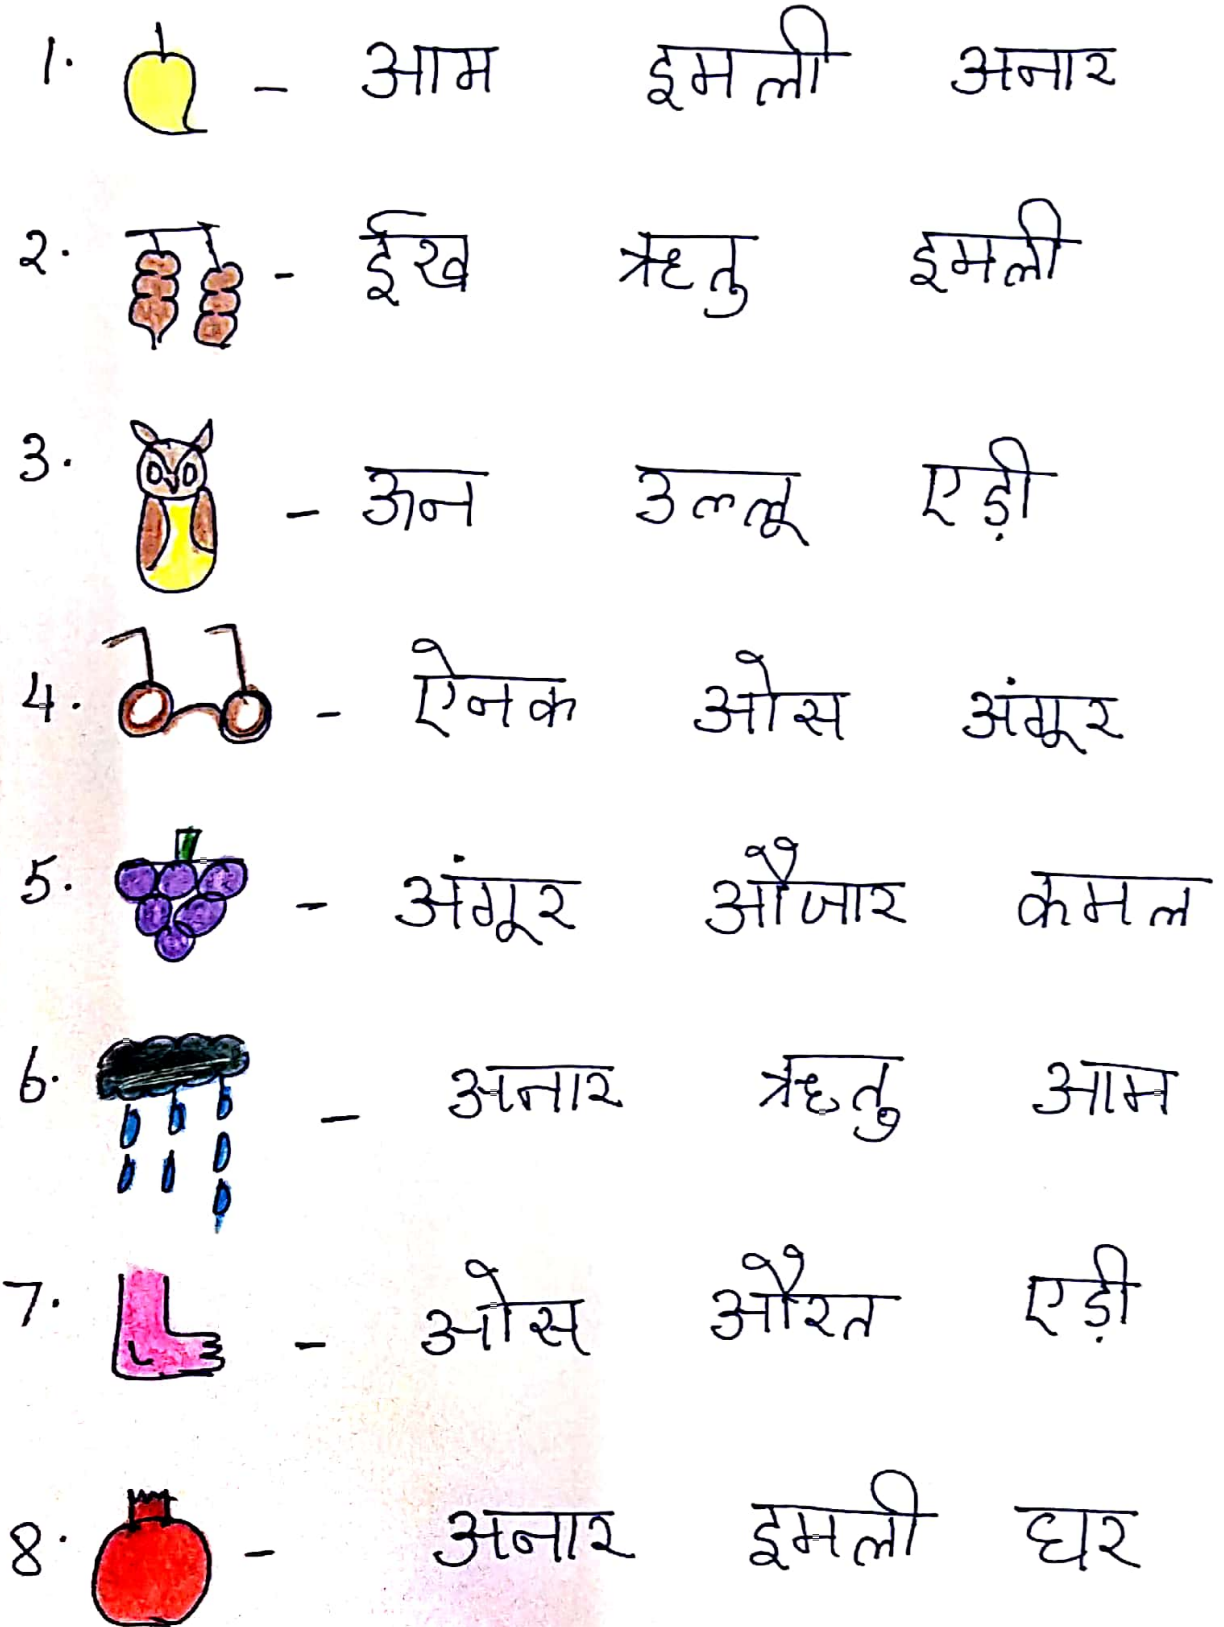 1. - आम इमली अनार
2. - ईख ऋतु इमली
3. - ऊन उल्लू एड़ी
4. - ऐनक ओस अंगूर
5. - अंगूर औजार कमल
6. - अनार ऋतु आम
7. - ओस औरत एड़ी
8. - अनार इमली घर